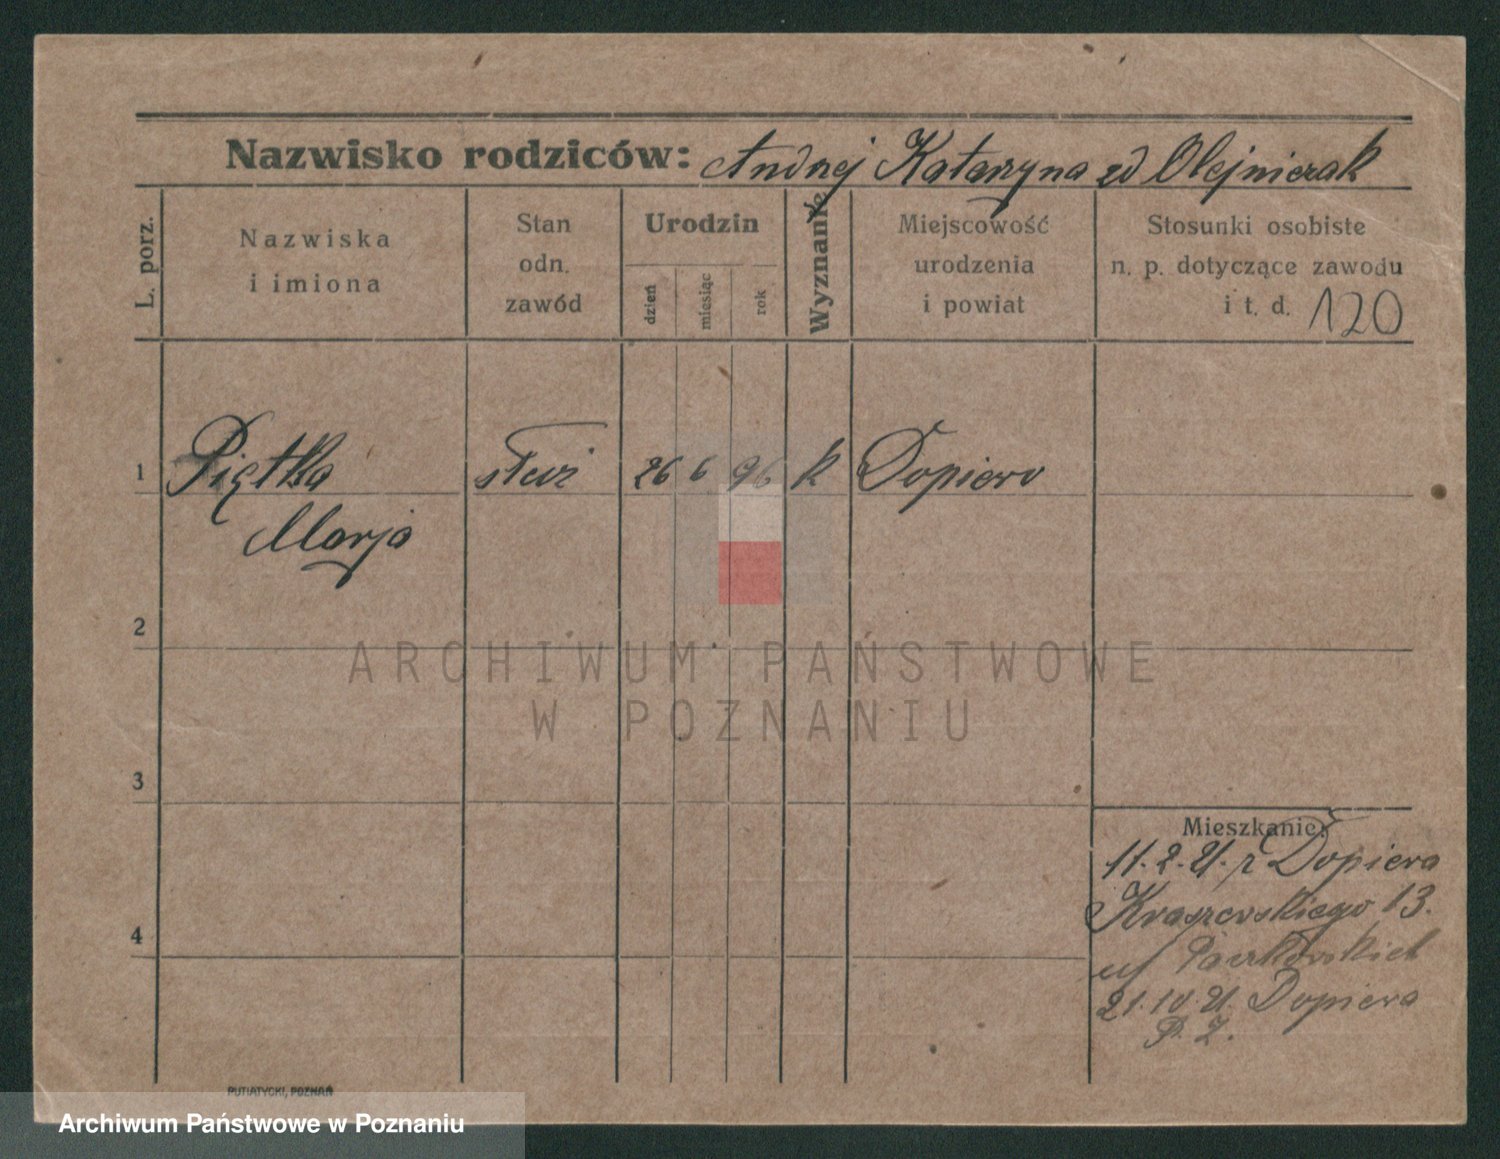 Nazwisko rodziców: Andrzej Katarzyna zd Olejniczak
L. porz.
Nazwiska
i imiona
Stan
odn.
zawód
Urodzin
dzień
miesiąc
rok
Wyznanie
Miejscowość
urodzenia
i powiat
Stosunki osobiste
n. p. dotyczące zawodu
i t. d. 120
1 Piątka służ 26 6 96 k Dopiero
Marja
2
ARCHIWUM PAŃSTWOWE
W POZNANIU
3
Mieszkanie:
11.2.21. z Dopiera
Kraszewskiego 13.
4
u/ Paczkowskich
21.10.21. Dopiera
P. Z.
PUTIATYCKI, POZNAŃ
Archiwum Państwowe w Poznaniu